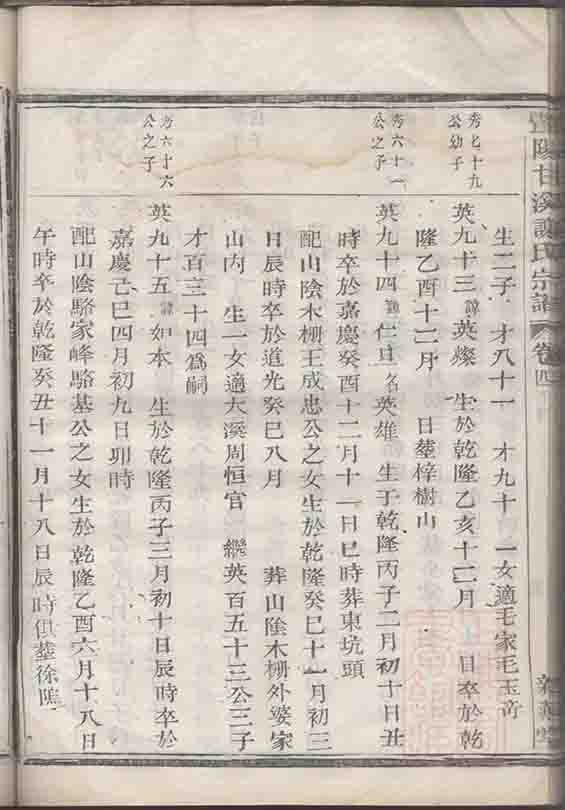 陽甘溪謝氏宗譜 卷四
生二子 才八十一 才九十 一女適毛家毛玉奇
秀七十九公幼子
英九十三 諱英燦 生於乾隆乙亥十二月 日卒於乾
隆乙酉十二月 日塟梓樹山
秀六十一公之子
英九十四 諱仁且 名英雄 生于乾隆丙子二月初十日丑
時卒於嘉慶癸酉十二月十一日巳時葬東坑頭
配山陰木柵王成忠公之女生於乾隆癸巳十一月初三
日辰時卒於道光癸巳八月 葬山陰木柵外婆家
山内 生一女適大溪周恒官 繼英百五十三公三子
才百三十四爲嗣
秀六十六公之子
英九十五 諱如本 生於乾隆丙子三月初十日辰時卒於
嘉慶己巳四月初九日卯時
配山陰駱家峰駱基公之女生於乾隆乙酉六月十八日
午時卒於乾隆癸丑十一月十八日辰時俱塟徐